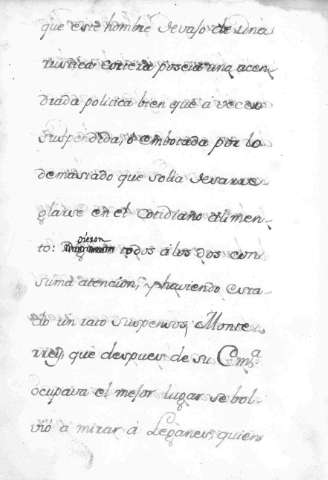 que este hombre devajo de una
rustica corteza poseia una acen-
drada politica bien que á veces
suspendida, ó embotada por lo
demasiado que solia desarre-
glarse en el cotidiano alimen-
to: pieron todos á los dos con
suma atencion, y haviendo esta-
do un rato suspensos, Monte-
rrey, que despues de su Comª
ocupava el mejor lugar se bol-
vió á mirar á Leganes, quien